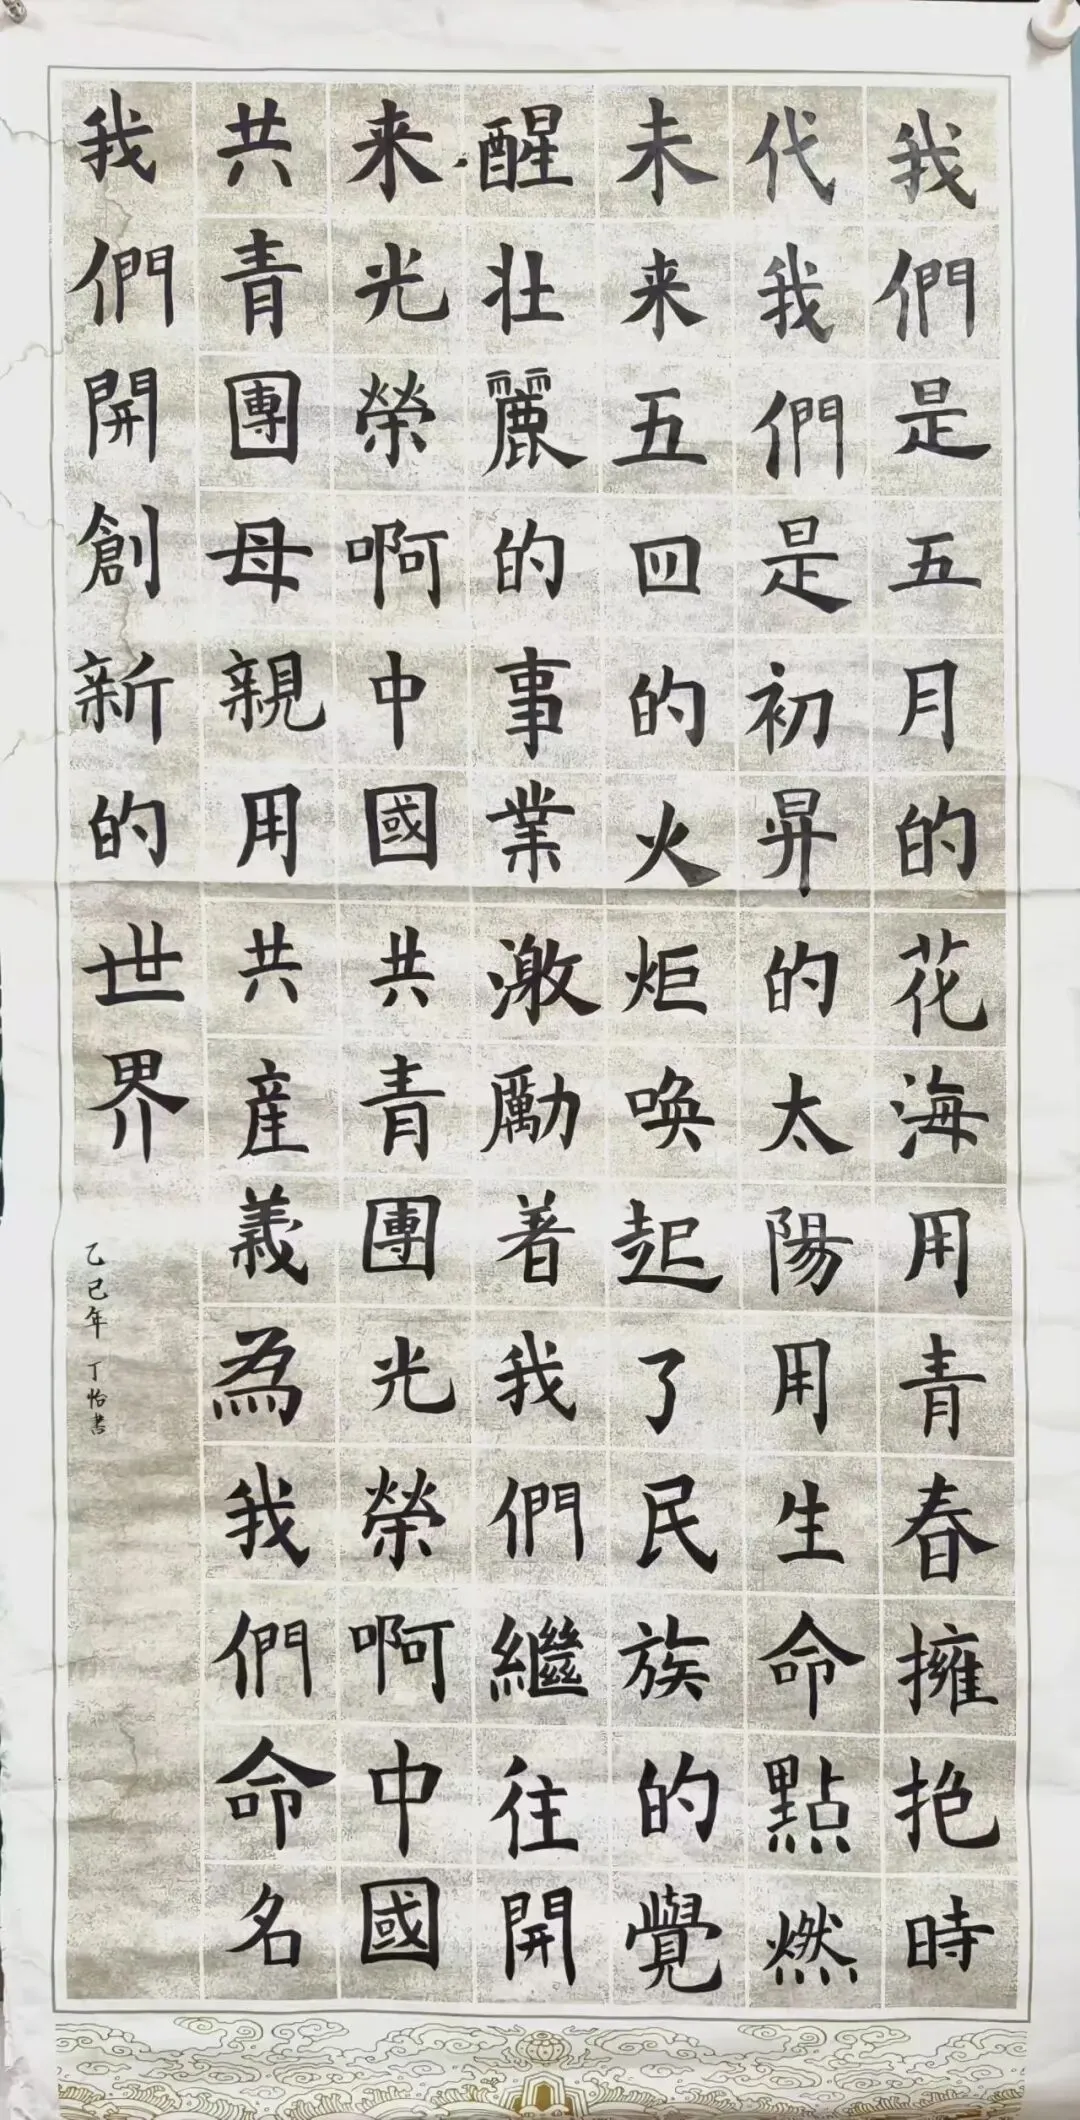 我們是五月的花海用青春擁抱時
代我們是初昇的太陽用生命點燃
未来五四的火炬唤起了民族的覺
醒壮麗的事業激勵着我們繼往開
来光榮啊中國共青團光榮啊中國
共青團母親用共産義為我們命名
我們開創新的世界
乙巳年 丁怡書